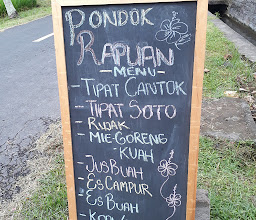 PONDOK
RAPUAN
-MENU-
- TIPAT CANTOK
- TIPAT SOTO
- RUJAK
- MIE-GORENG
- KUAH
- JUS BUAH
- ES CAMPUR
- ES BUAH